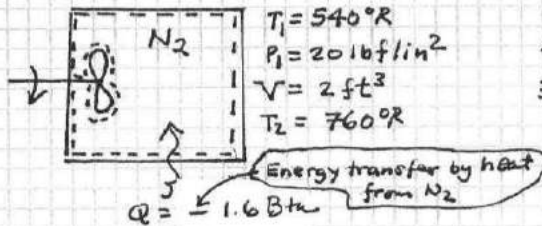 N₂
T₁ = 540°R
P₁ = 20 lbf/in²
V = 2 ft³
T₂ = 760°R
Energy transfer by heat
from N₂
Q = - 1.6 Btu